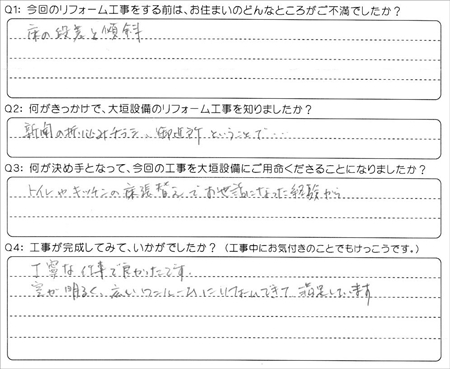 Q1: 今回のリフォーム工事をする前は、お住まいのどんなところがご不満でしたか？
床の段差と傾斜
Q2: 何がきっかけで、大垣設備のリフォーム工事を知りましたか？
新聞の折り込みチラシ、御近所ということで…
Q3: 何が決め手となって、今回の工事を大垣設備にご用命くださることになりましたか？
トイレやキッチンの床張替えでお世話になった経験から
Q4: 工事が完成してみて、いかがでしたか？（工事中にお気付きのことでもけっこうです。）
丁寧な仕事で良かったです。
室が明るく、広いワンルームにリフォームできて満足しています